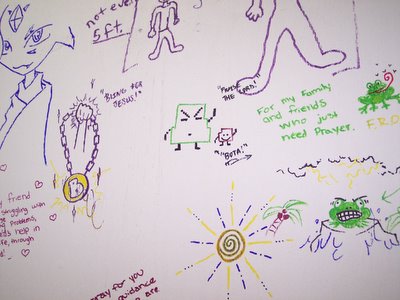 not eve
5ft.
"BLING FER
JESUS!"
THE LORD."
For my Family
and friends
who just
need Prayer.
F.R.O
"BOTA!"
B
friend
struggling with
problems,
help in
through
ray for you
guidance
are